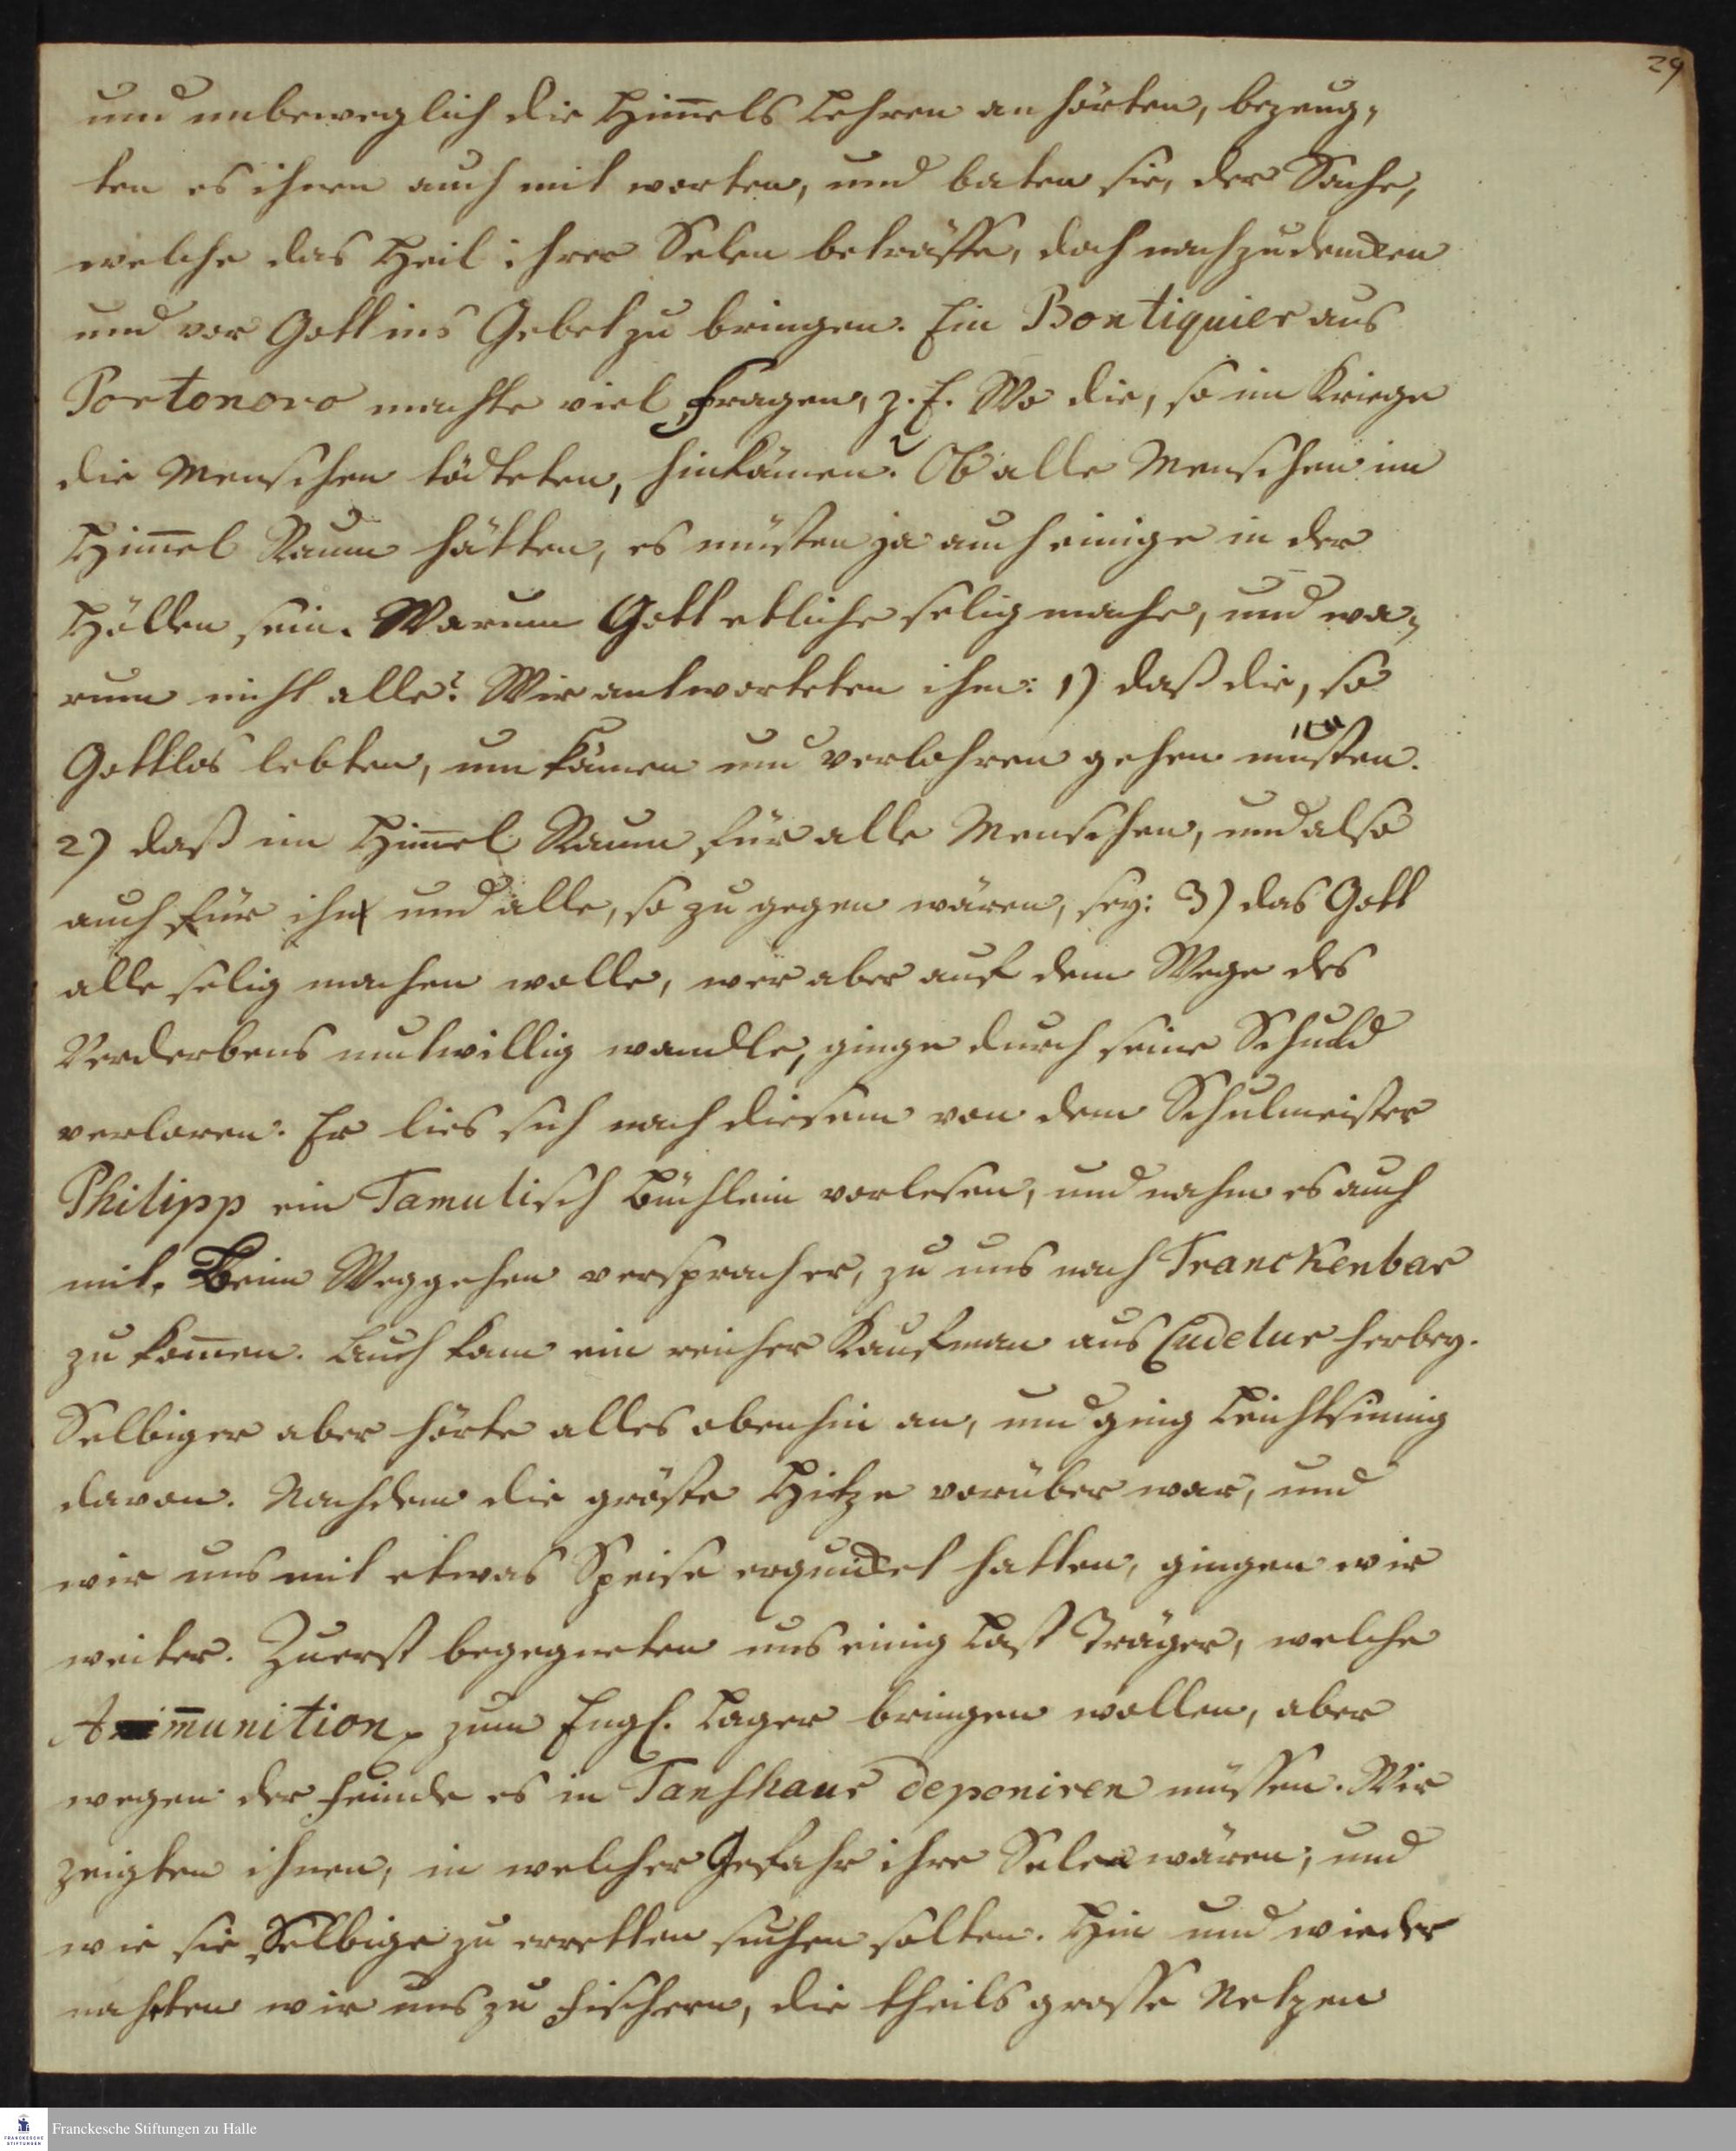 29
und unbeweglich die Him̅els Lehren anhörten, bezeug-
ten es ihnen auch mit worten, und baten sie, der Sache,
welche das Heil ihrer Selen beträffe, doch nachzudencken
und vor Gott ins Gebet zu bringen. Ein Boutiquier aus
Portonovo machte viel Fragen, z. E. Wo die, so im Kriege
die Menschen tödteten, hinkämen? Ob alle Menschen im
Him̅el Raum hätten, es müsten ja auch einige in der
Höllen sein. Warum Gott etliche selig mache, und wa-
rum nicht alle? Wir antworteten ihm: 1) daß die, so
Gottlos lebten, umkämen und verlohren gehen müsten.
2) daß im Him̅el Raum für alle Menschen, und also
auch für ihn und alle, so zu gegen wären, sey: 3) das Gott
alle selig machen wolle, wer aber auf dem Wege des
Verderbens mutwillig wandle, ginge durch seine Schuld
verloren. Er lies sich nach diesem von dem Schulmeister
Philipp ein Tamulisch Büchlein vorlesen, und nahm es auch
mit. Beim Weggehen versprach er, zu uns nach Tranckenbar
zu kom̅en. Auch kam ein reicher Kaufman aus Cudelur herbey.
Selbiger aber hörte alles obenhin an, und ging Leichtsinnig
davon. Nachdem die gröste Hitze vorüber war, und
wir uns mit etwas Speise erquicket hatten, gingen wir
weiter. Zuerst begegneten uns einig Last Träger, welche
Am̅unition zum Engl. Lager bringen wollen, aber
wegen der Feinde es in Tanshaur deponiren müssen. Wir
zeigten ihnen, in welcher Gefahr ihre Selen wären; und
wie sie Selbige zu erretten suchen solten. Hin und wieder
nahten wir uns zu Fischern, die theils grosse Netzen
Franckesche Stiftungen zu Halle
FRANCKESCHE
STIFTUNGEN